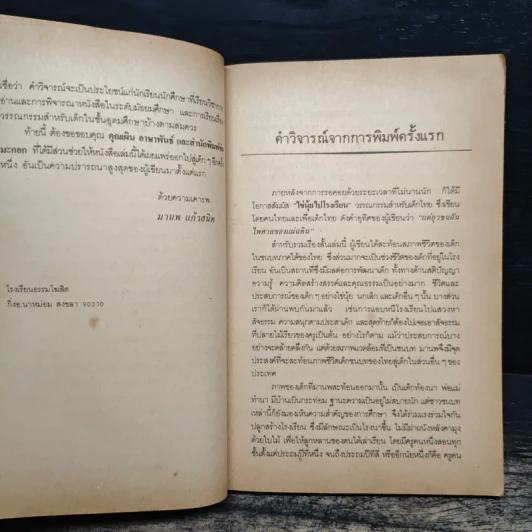 เชื่อว่า คำวิจารณ์จะเป็นประโยชน์แก่นักเรียนนักศึกษาที่เรียนวิชาการ
อ่านและการพิจารณาหนังสือในระดับมัธยมศึกษา และการเรียนเรื่อง
วรรณกรรมสำหรับเด็กในชั้นอุดมศึกษาบ้างตามสมควร
ท้ายนี้ ต้องขอขอบคุณ คุณผิน อาษาพันธ์ และสำนักพิมพ์ต้น
มะกอก ที่ได้มีส่วนช่วยให้หนังสือเล่มนี้ได้เผยแพร่ออกไปสู่เด็ก ๆ อีกครั้ง
หนึ่ง อันเป็นความปรารถนาสูงสุดของผู้เขียนมาตั้งแต่แรก
ด้วยความเคารพ
มานพ แก้วสนิท
โรงเรียนธรรมโฆสิต
กิ่งอ.นาหม่อม สงขลา ๙๐๓๑๐
คำวิจารณ์จากการพิมพ์ครั้งแรก
ภายหลังจากการรอคอยด้วยระยะเวลาที่ไม่นานนัก ก็ได้มี
โอกาสสัมผัส "ไข่นุ้ยไปโรงเรียน" วรรณกรรมสำหรับเด็กไทย ซึ่งเขียน
โดยคนไทยและเพื่อเด็กไทย ดังคำอุทิศของผู้เขียนว่า
สำหรับรวมเรื่องสั้นเล่มนี้ ผู้เขียนได้สะท้อนสภาพชีวิตของเด็ก
ในชนบทภาคใต้ของไทย ซึ่งส่วนมากจะเป็นช่วงชีวิตของเด็กที่อยู่ในโรง
เรียน อันเป็นสถานที่ซึ่งมีผลต่อการพัฒนาเด็ก ทั้งทางด้านสติปัญญา
ความรู้ ความคิดสร้างสรรค์และคุณธรรมเป็นอย่างมาก ชีวิตและ
ประสบการณ์ของเด็ก ๆ อย่างไข่นุ้ย นกเล็ก และเด็กอื่น ๆ นั้น บางส่วน
เราก็ได้ผ่านพบกันมาแล้ว เช่นการแอบหนีโรงเรียนไปแสวงหา
สัจธรรม ความสนุกตามประสาเด็ก และสุดท้ายก็ต้องไปเจอเอาสัจธรรม
ที่ปลายไม้เรียวของครูเป็นต้น อย่างไรก็ตาม แม้ว่าประสบการณ์บาง
อย่างจะคล้ายคลึงกัน แต่ด้วยสภาพแวดล้อมที่เป็นชนบท มานพจึงมีจุด
ประสงค์ที่จะสะท้อนภาพชีวิตเด็กชนบทของไทยสู่เด็กในส่วนอื่น ๆ ของ
ประเทศ
ภาพของเด็กที่มานพสะท้อนออกมานั้น เป็นเด็กท้องนา พ่อแม่
ทำนา มีบ้านเป็นกระท่อม ฐานะความเป็นอยู่ไม่สบายนัก แต่ชาวชนบท
เหล่านี้ก็ยังมองเห็นความสำคัญของการศึกษา จึงได้ร่วมแรงร่วมใจกัน
ปลูกสร้างโรงเรียน ซึ่งมีลักษณะเป็นโรงนาชื้น ไม่มีฝาผนังหลังคามุง
ด้วยใบไม้ เพื่อให้ลูกหลานของตนได้เล่าเรียน โดยมีครูคนหนึ่งสอนทุก
ชั้นตั้งแต่ประถมปีที่หนึ่ง จนถึงประถมปีที่สี่ หรืออีกนัยหนึ่งก็คือ ครูคน